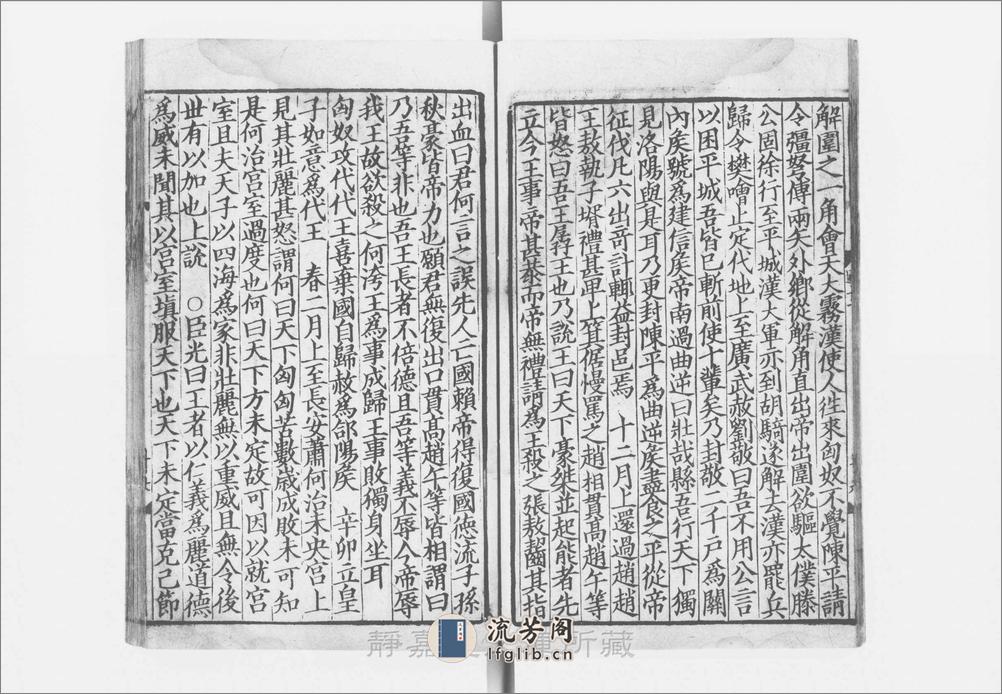 解圍之一角會天大霧漢使人往來匈奴不覺陳平請
令彊弩傅兩矢外鄉從解角直出帝出圍欲驅太僕滕
公固徐行至平城漢大軍亦到胡騎遂解去漢亦罷兵
歸令樊噲止定代地上至廣武赦劉敬曰吾不用公言
以困平城吾皆已斬前使十輩矣乃封敬二千戶爲關
內矦號爲建信矦帝南過曲逆曰壯哉縣吾行天下獨
見洛陽與是耳乃更封陳平爲曲逆矦盡食之平從帝
征伐凡六出竒計輒益封邑焉 十二月上還過趙趙
王敖執子壻禮甚卑上箕倨慢罵之趙相貫髙趙午等
皆怒曰吾王孱王也乃說王曰天下豪桀並起能者先
立今王事帝甚恭而帝無禮請爲王殺之張敖齧其指
出血曰君何言之誤先人亡國賴帝得復國德流子孫
秋豪皆帝力也願君無復出口貫髙趙午等皆相謂曰
乃吾等非也吾王長者不倍德且吾等義不辱今帝辱
我王故欲殺之何洿王爲事成歸王事敗獨身坐耳
匈奴攻代代王喜棄國自歸赦爲郃陽矦 辛卯立皇
子如意爲代王 春二月上至長安蕭何治未央宮上
見其壯麗甚怒謂何曰天下匈匈苦數歲成敗未可知
是何治宮室過度也何曰天下方未定故可因以就宮
室且夫天子以四海爲家非壯麗無以重威且無令後
世有以加也上說 ○臣光曰王者以仁義爲麗道德
爲威未聞其以宮室塡服天下也天下未定當克己節
靜嘉 所藏
流芳阁
lfglib.cn